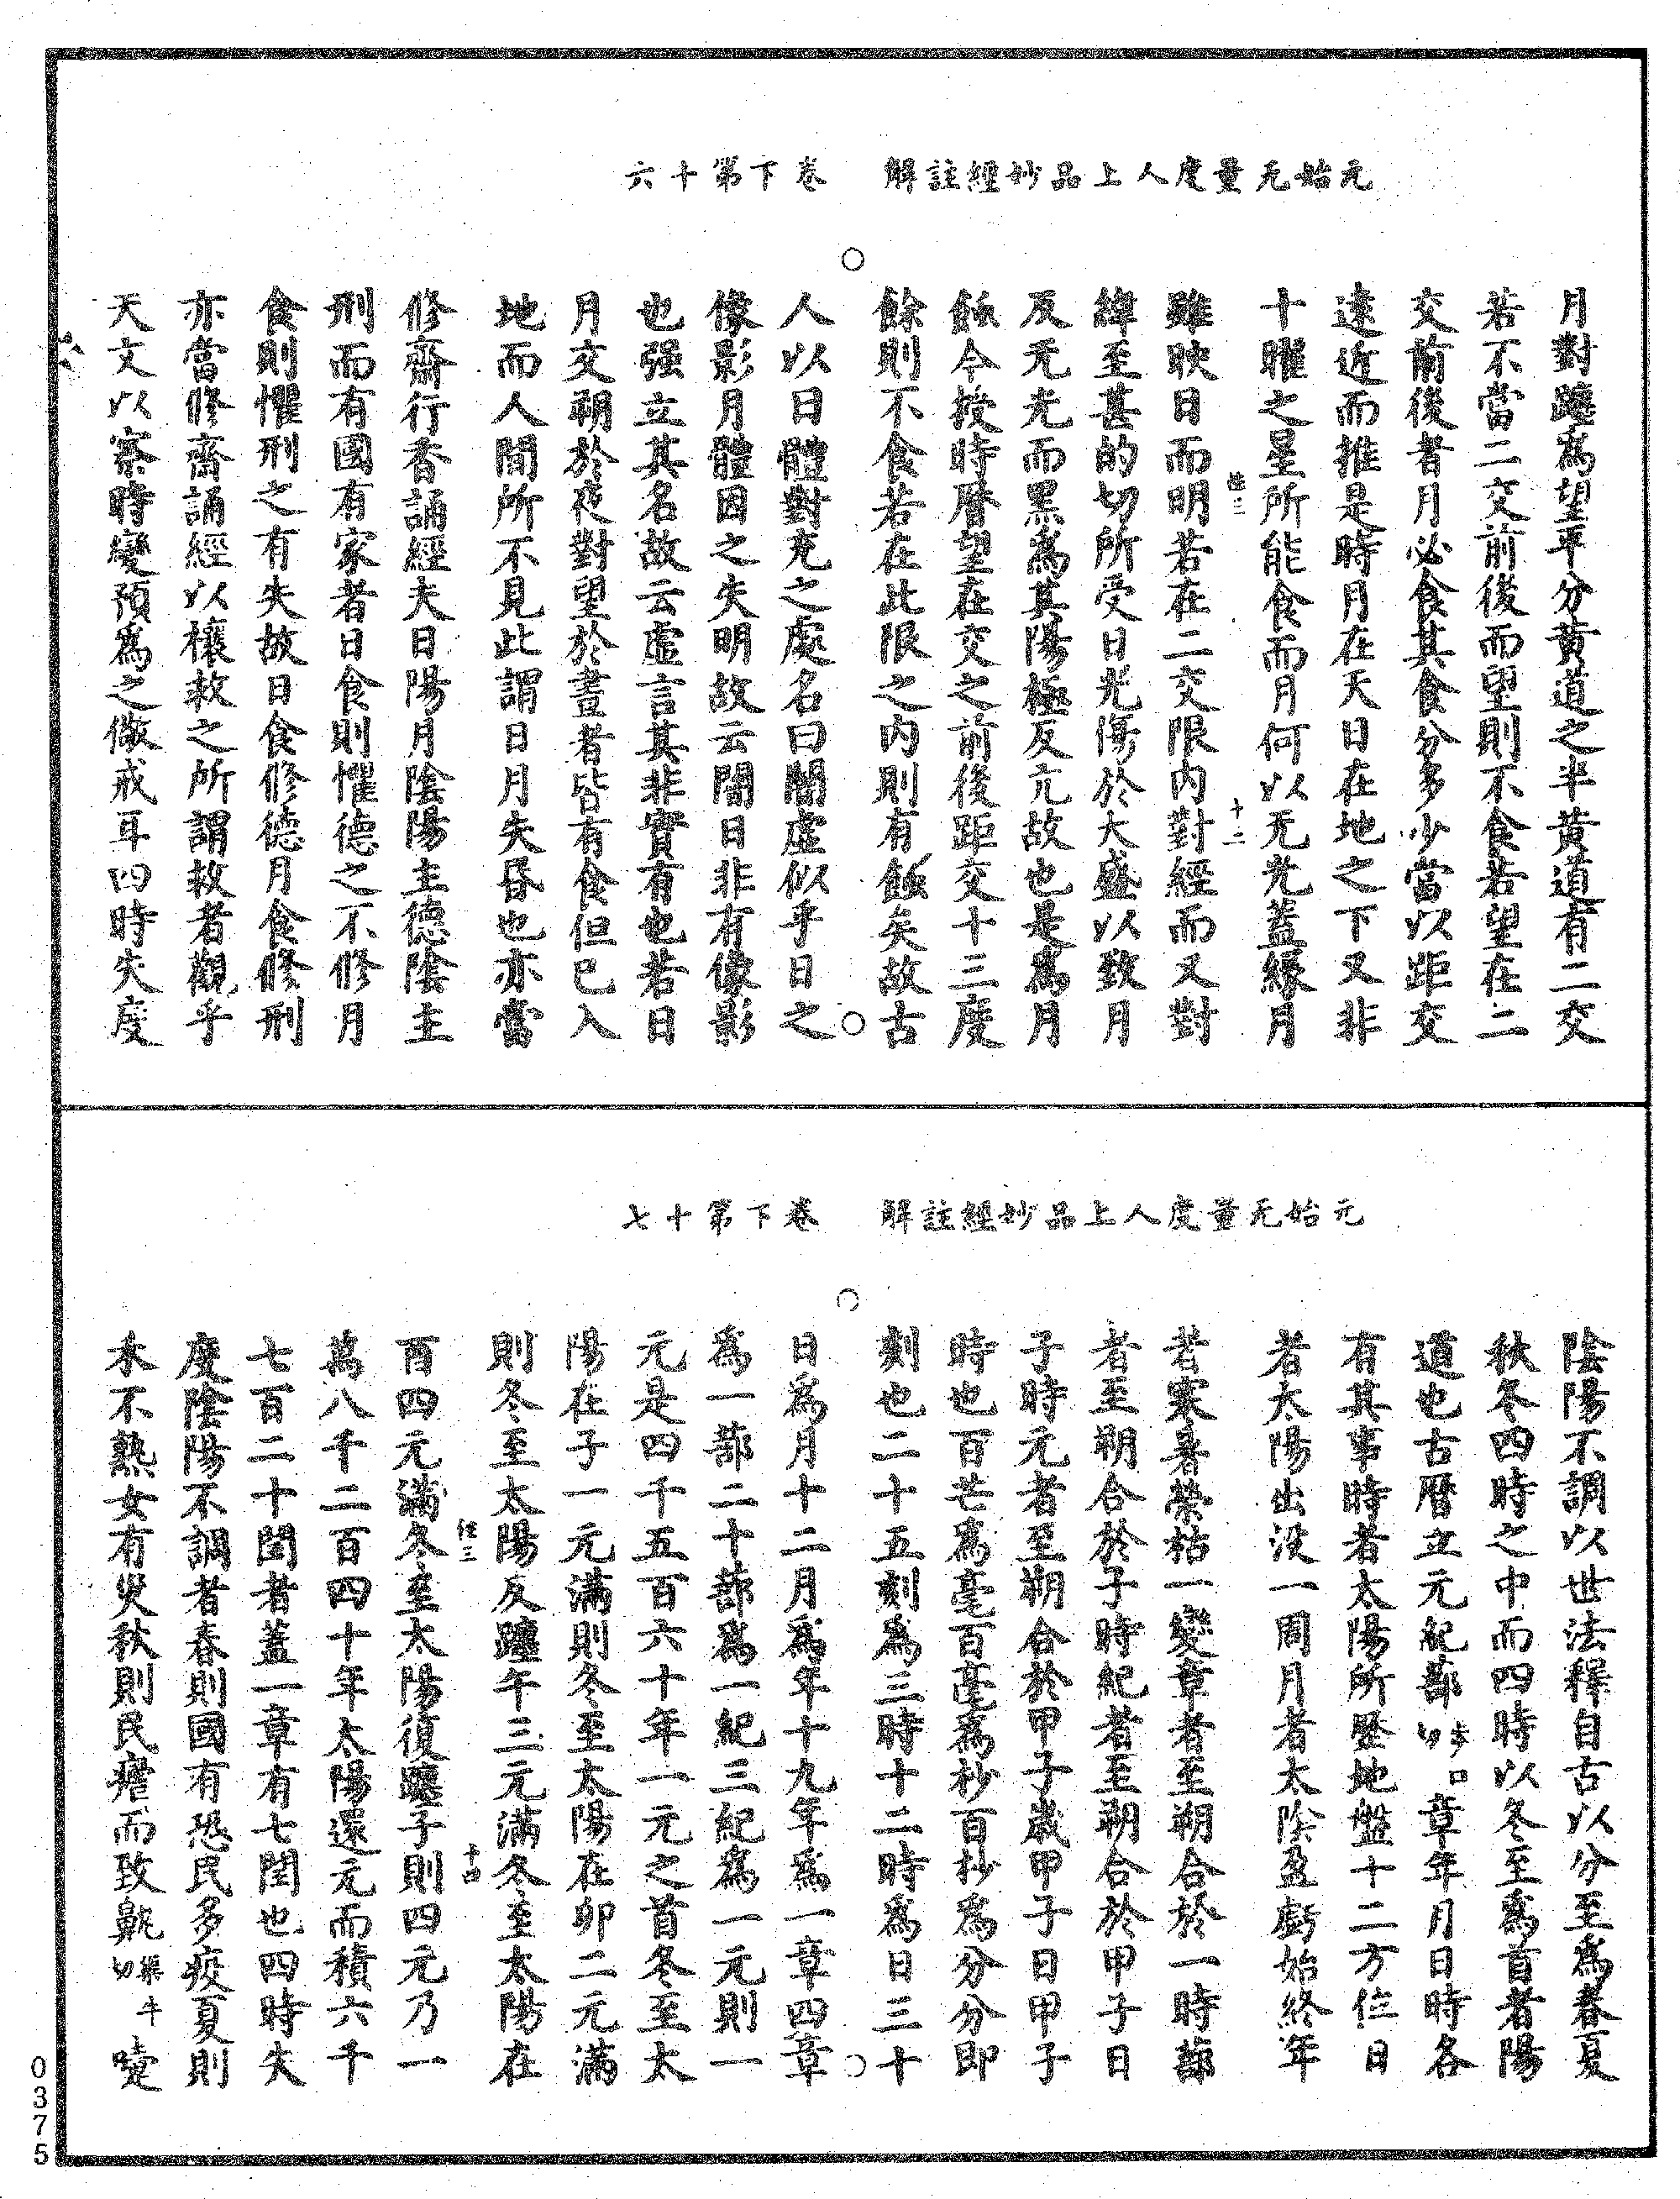 元始无量度人上品妙經註解 卷下第十六
月對躔爲望平分黄道之半黄道有二交
若不當二交前後而望則不食若望在二
交前後者月必食其食分多少當以距交
遠近而推是時月在天日在地之下又非
十曜之星所能食而月何以无光蓋緣月
雖映日而明若在二交限内對經而又對
緯至甚的切所受日光傷於大盛以致月
反无光而黑爲其陽極反亢故也是爲月
飿今授時曆望在交之前後距交十三度
餘則不食若在此限之内則有蝕矣故古
人以日體對充之處名曰闇虛似乎日之
像影月體因之失明故云闇日非有像影
也强立其名故云虛言其非實有也若日
月交朔於夜對望於晝者皆有食但已入
地而人間所不見此謂日月失昏也亦當
修齋行香誦經夫日陽月陰陽主德陰主
刑而有國有家者日食則懼德之不修月
食則懼刑之有失故日食修德月食修刑
亦當修齋誦經以禳救之所謂救者觀乎
天文以察時變預爲之儆戒耳四時失度
元始无量度人上品妙經註解 卷下第十七
陰陽不調以世法釋自古以分至爲春夏
秋冬四時之中而四時以冬至爲首者陽
道也古曆立元紀蔀章年月日時各
有其事時者太陽所歷地盤十二方位日
者太陽出没一周月者太陰盈虧始終年
者寒暑榮枯一變章者至朔合於一時蔀
者至朔合於子時紀者至朔合於甲子日
子時元者至朔合於甲子歲甲子日甲子
時也百芒爲毫百毫爲杪百杪爲分分即
刻也二十五刻爲三時十二時爲日三十
日爲月十二月爲年十九年爲一章四章
爲一蔀二十蔀爲一紀三紀爲一元則一
元是四千五百六十年一元之首冬至太
陽在子一元滿則冬至太陽在卯二元滿
則冬至太陽反躔午三元滿冬至太陽在
酉四元滿冬至太陽復躔子則四元乃一
萬八千二百四十年太陽還元而積六千
七百二十閏者蓋一章有七閏也四時失
度陰陽不調者春則國有恐民多疫夏則
禾不熟女有災秋則民瘧而致鼽渠牛切嚏
陸三
十二
陸三
十四
0375